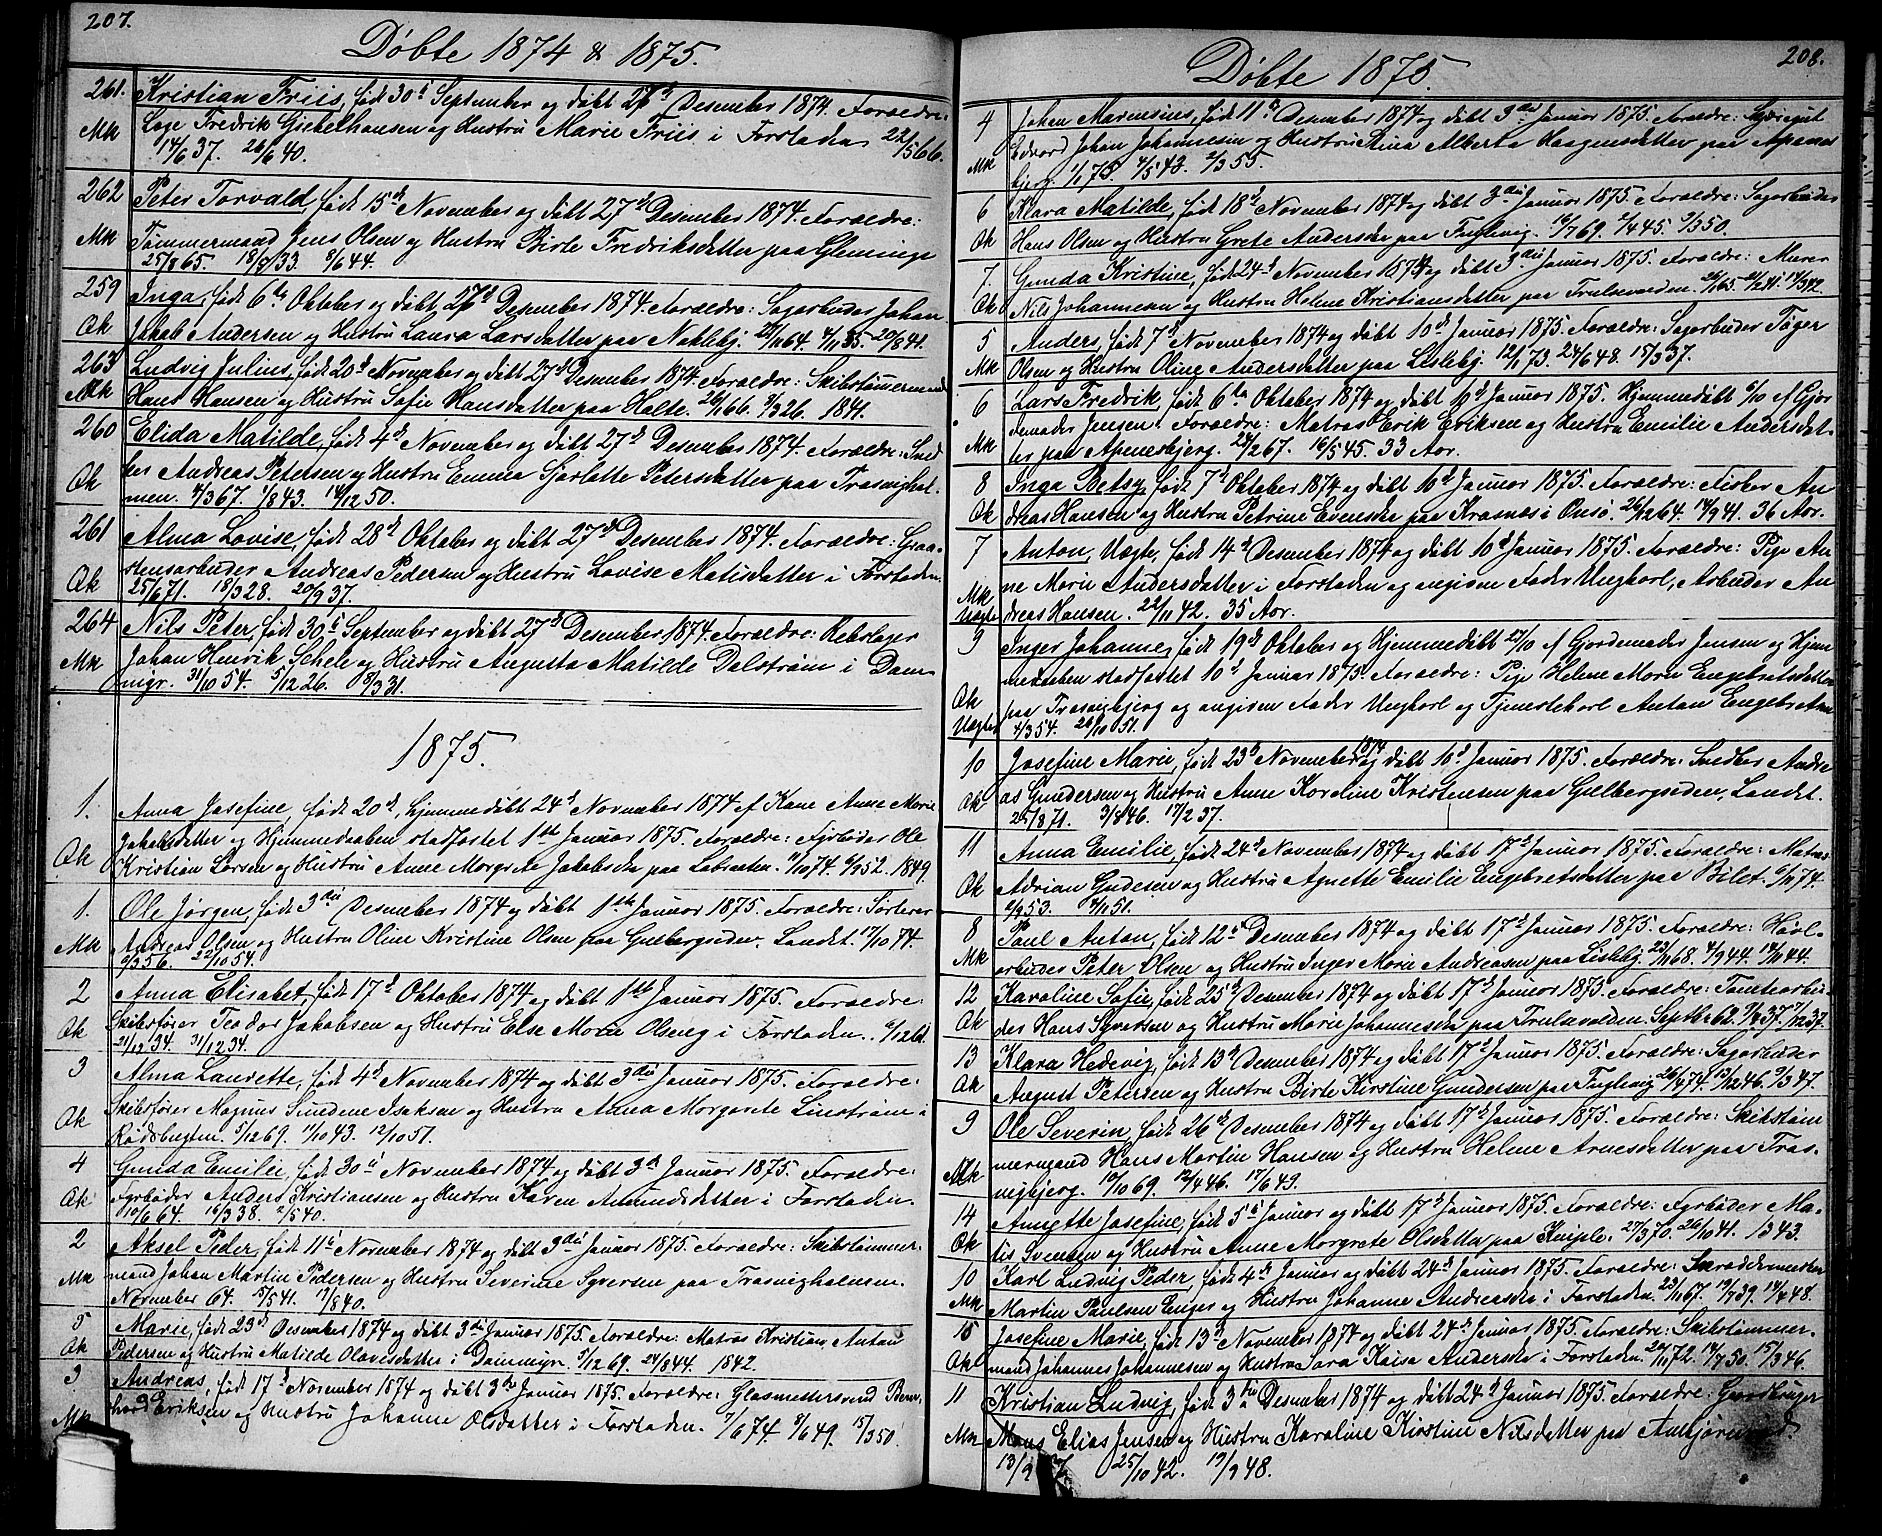 207.
Döbte 1874 & 1875.
261. Kristian Friis, födt 30te September og döbt 26de Desember 1874. Foræltre:
Mk Loge Fredrik Giebelhausen og Hustru Marie Friis i Forstaden 22/5 66.
14/6 37. 26/6 40.
262 Peter Torvald, födt 15de November og döbt 27de Desember 1874. Foræltre:
Mk Tömmermand Jens Olsen og Hustru Birte Fredriksdatter paa Glemminge
25/8 65. 18/9 33. 8/6 44.
259 Inga, födt 6te Oktober og döbt 27de Desember 1874. Foræltre: Sagarbeider Johan
Qk Jakob Andersen og Hustru Laura Larsdatter paa Nökleby. 4/11 35. 20/8 41.
263 Ludvig Julius, födt 20de November og döbt 27de Desember 1874. Foræltre: Skibstömmermand
Mk Hans Hansen og Hustru Sofie Hansdatter paa Holte. 26/1 66. 8/3 26. 1841.
260 Elida Matilde, födt 4de November og döbt 27de Desember 1874. Foræltre: Sned
Qk ker Andreas Petersen og Hustru Emma Sjarlotte Petersdatter paa Trosvighol
men. 4/3 67. 1/8 43. 14/12 50.
261 Alma Lovise, födt 28de Oktober og döbt 27de Desember 1874. Foræltre: Graa-
Qk stensarbeider Andreas Pedersen og Hustru Lovise Matisdatter i Forstaden
25/6 71. 18/3 28. 20/9 37.
264 Nils Peter, födt 30te September og döbt 27de Desember 1874. Foræltre: Rebslager
Mk Johan Henrik Schele og Hustru Augusta Matilde Dalström i Dam
myr. 31/10 54. 5/12 26. 8/3 31.
1875.
1. Anna Josefine, födt 20de, hjemmedöbt 24de November 1874 af Kone Anne Marie
Jakobsdatter og Hjemmedaaben stadfæstet 1ste Januar 1875. Foræltre: Fyrböder Ole
Qk Kristian Larsen og Hustru Anne Margrete Jakobsdr paa Labraaten. 11/10 74. 1849
1. Ole Jörgen, födt 3die Desember 1874 og döbt 1ste Januar 1875. Foræltre: Sorterer
Mk Andreas Olsen og Hustru Oline Kristine Olsen paa Gulbergsiden. Landet. 17/10 74.
9/3 56. 22/10 54.
2 Anna Elisabet, födt 17de Oktober 1874 og döbt 1ste Januar 1875. Foræltre:
Qk Skibsförer Teodor Jakobsen og Hustru Else Marie Olsen i Forstaden. 6/12 61.
21/12 34. 31/12 34.
3 Alma Laurette, födt 4de November 1874 og döbt 3die Januar 1875. Foræltre:
Qk Skibsförer Magnus Sundene Isaksen og Hustru Anna Margrete Linström i
Rödsbugten. 5/12 69. 11/10 43. 12/10 51.
4 Gunda Emilie, födt 30te November 1874 og döbt 3de Januar 1875. Foræltre:
Qk Fyrböder Anders Kristiansen og Hustru Karen Amundsdatter i Forstaden.
10/6 64. 15/3 38. 2/5 40.
2 Aksel Peder, födt 11te November 1874 og döbt 3die Januar 1875. Foræltre: Skibstömmer-
Mk mand Johan Martin Pedersen og Hustru Severine Syversen paa Trosvigholmen.
November 64. 15/5 41. 17/8 40.
5 Marie, födt 23de Desember 1874 og döbt 3die Januar 1875. Foræltre: Matros Kristian Anton
Qk Pedersen og Hustru Matilde Olavesdatter i Dammyr. 5/12 69. 24/8 44. 1842.
3 Andreas, födt 17de November 1874 og döbt 3die Januar 1875. Foræltre: Glasmestersvend Bern-
Mk hard Eriksen og Hustru Johanne Olsdatter i Forstaden. 7/6 74. 8/6 49. 15/3 50.
208.
Döbte 1875.
4 Johan Marensius, födt 11te Desember 1874 og döbt 3die Januar 1875. Foræltre:
Mk Edvard Johan Johannesen og Hustru Alberta Haagensdatter paa Apenes
bjerg. 1/1 73. 4/5 43. 2/3 55.
6 Klara Matilde, födt 18de November 1874 og döbt 3die Januar 1875. Foræltre: Sagarbeider
Qk Hans Olsen og Hustru Grete Andersdr paa Fuglevig. 16/7 69. 2/4 45. 9/3 50.
7. Gunda Kristine, födt 24de November 1874 og döbt 3die Januar 1875. Foræltre: Murer
Qk Nils Johannesen og Hustru Helene Kristiansdatter paa Trulsevarden. 26/1 65. 21/2 41. 14/3 42.
5 Anders, födt 7de November 1874 og döbt 10de Januar 1875. Foræltre: Sagarbeider Töger
Mk Olsen og Hustru Oline Andersdatter paa Lisleby. 12/1 73. 24/6 48. 15/3 37.
6 Lars Fredrik, födt 6te Oktober 1874 og döbt 10de Januar 1875. Hjemmedöbt 6/10 af Gjor
Mk demoder Jensen. Foræltre: Matros Erik Eriksen og Hustru Emilie Andersdat-
ter paa Apenesbjerg. 24/2 67. 16/5 45. 33 Aar.
8 Inga Betsy, födt 7de Oktober 1874 og döbt 10de Januar 1875. Foræltre: Fisker An
Qk dreas Hansen og Hustru Petrine Evensdr paa Krosnæs i Onsö. 26/12 64. 14/9 41. 36 Aar.
7 Anton, Uægte, födt 14de Desember 1874 og döbt 10de Januar 1875. Foræltre: Pige An
Mk ne Marie Andersdatter i Forstaden og angiven Fader Ungkarl, Arbeider An
Uægte dreas Hansen. 22/11 42. 35 Aar.
9 Inger Johanne, födt 19de Oktober og Hjemmedöbt 27/10 af Gjordemoder Jensen og Hjem
medaaben stadfæstet 10de Januar 1875. Foræltre: Pige Helene Marie Engebretsdatter
Qk paa Trosvigbjerg og angiven Fader Ungkarl og Tjenestekarl Anton Engebretsen
Uægte 4/3 54. 29/10 51.
10 Josefine Marie, födt 23de November 1874 og döbt 10de Januar 1875. Foræltre: Snedker Andre
Qk as Gundersen og Hustru Anne Karoline Kristensen paa Gulbergsiden, Landet.
25/8 71. 3/8 46. 17/2 37.
11 Anna Emilie, födt 24de November 1874 og döbt 17de Januar 1875. Foræltre: Matros
Qk Adrian Gudesen og Hustru Agnette Emilie Engebretsdatter paa Bilet. 6/11 74.
2/9 53. 4/1 51.
8 Paul Anton, födt 12te Desember 1874 og döbt 17de Januar 1875. Foræltre: Hövl-
Mk arbeider Peter Olsen og Hustru Inger Marie Andreasen paa Lisleby. 23/11 68. 4/9 44. 14/10 44.
12 Karoline Sofie, födt 25de Desember 1874 og döbt 17de Januar 1875. Foræltre: Tomtearbei
Qk der Hans Syversen og Hustru Marie Johannesdr paa Trulsvolden. Septbr 62. 9/8 37. 7/12 37.
13 Klara Hedevig, födt 13de Desember 1874 og döbt 17de Januar 1875. Foræltre: Sagarbeider
Qk August Petersen og Hustru Birte Kirstine Gundersen paa Fuglevig. 26/4 74. 13/12 46. 9/3 47.
9 Ole Severin, födt 26de Desember 1874 og döbt 17de Januar 1875. Foræltre: Skibstöm
Mk mermand Hans Martin Hansen og Hustru Helene Arnesdatter paa Tros-
vigbjerg. 10/10 69. 12/4 46. 17/6 49.
14 Annette Josefine, födt 5te Januar og döbt 17de Januar 1875. Foræltre: Fyrböder Ma-
Qk tis Svensen og Hustru Anne Margrete Olsdatter paa Kniple. 27/3 70. 26/10 41. 1843.
10 Karl Ludvig Peder, födt 4de Januar og döbt 24de Januar 1875. Foræltre: Skræddermester
Mk Martin Paulsen Enger og Hustru Johanne Andreasdr i Forstaden. 23/11 67. 19/7 39. 14/4 48.
15 Josefine Marie, födt 13de November 1874 og döbt 24de Januar 1875. Foræltre: Skibstömmer-
Qk mand Johannes Johannesen og Hustru Sara Kaisa Andersdr i Forstaden. 24/11 72. 14/7 50. 15/3 46.
11 Kristian Ludvig, födt 3die Desember 1874 og döbt 24de Januar 1875. Foræltre: Gaardbruger
Mk Mons Elias Jensen og Hustru Karoline Kirstine Nilsdatter paa
25/10 42. 19/9 48.